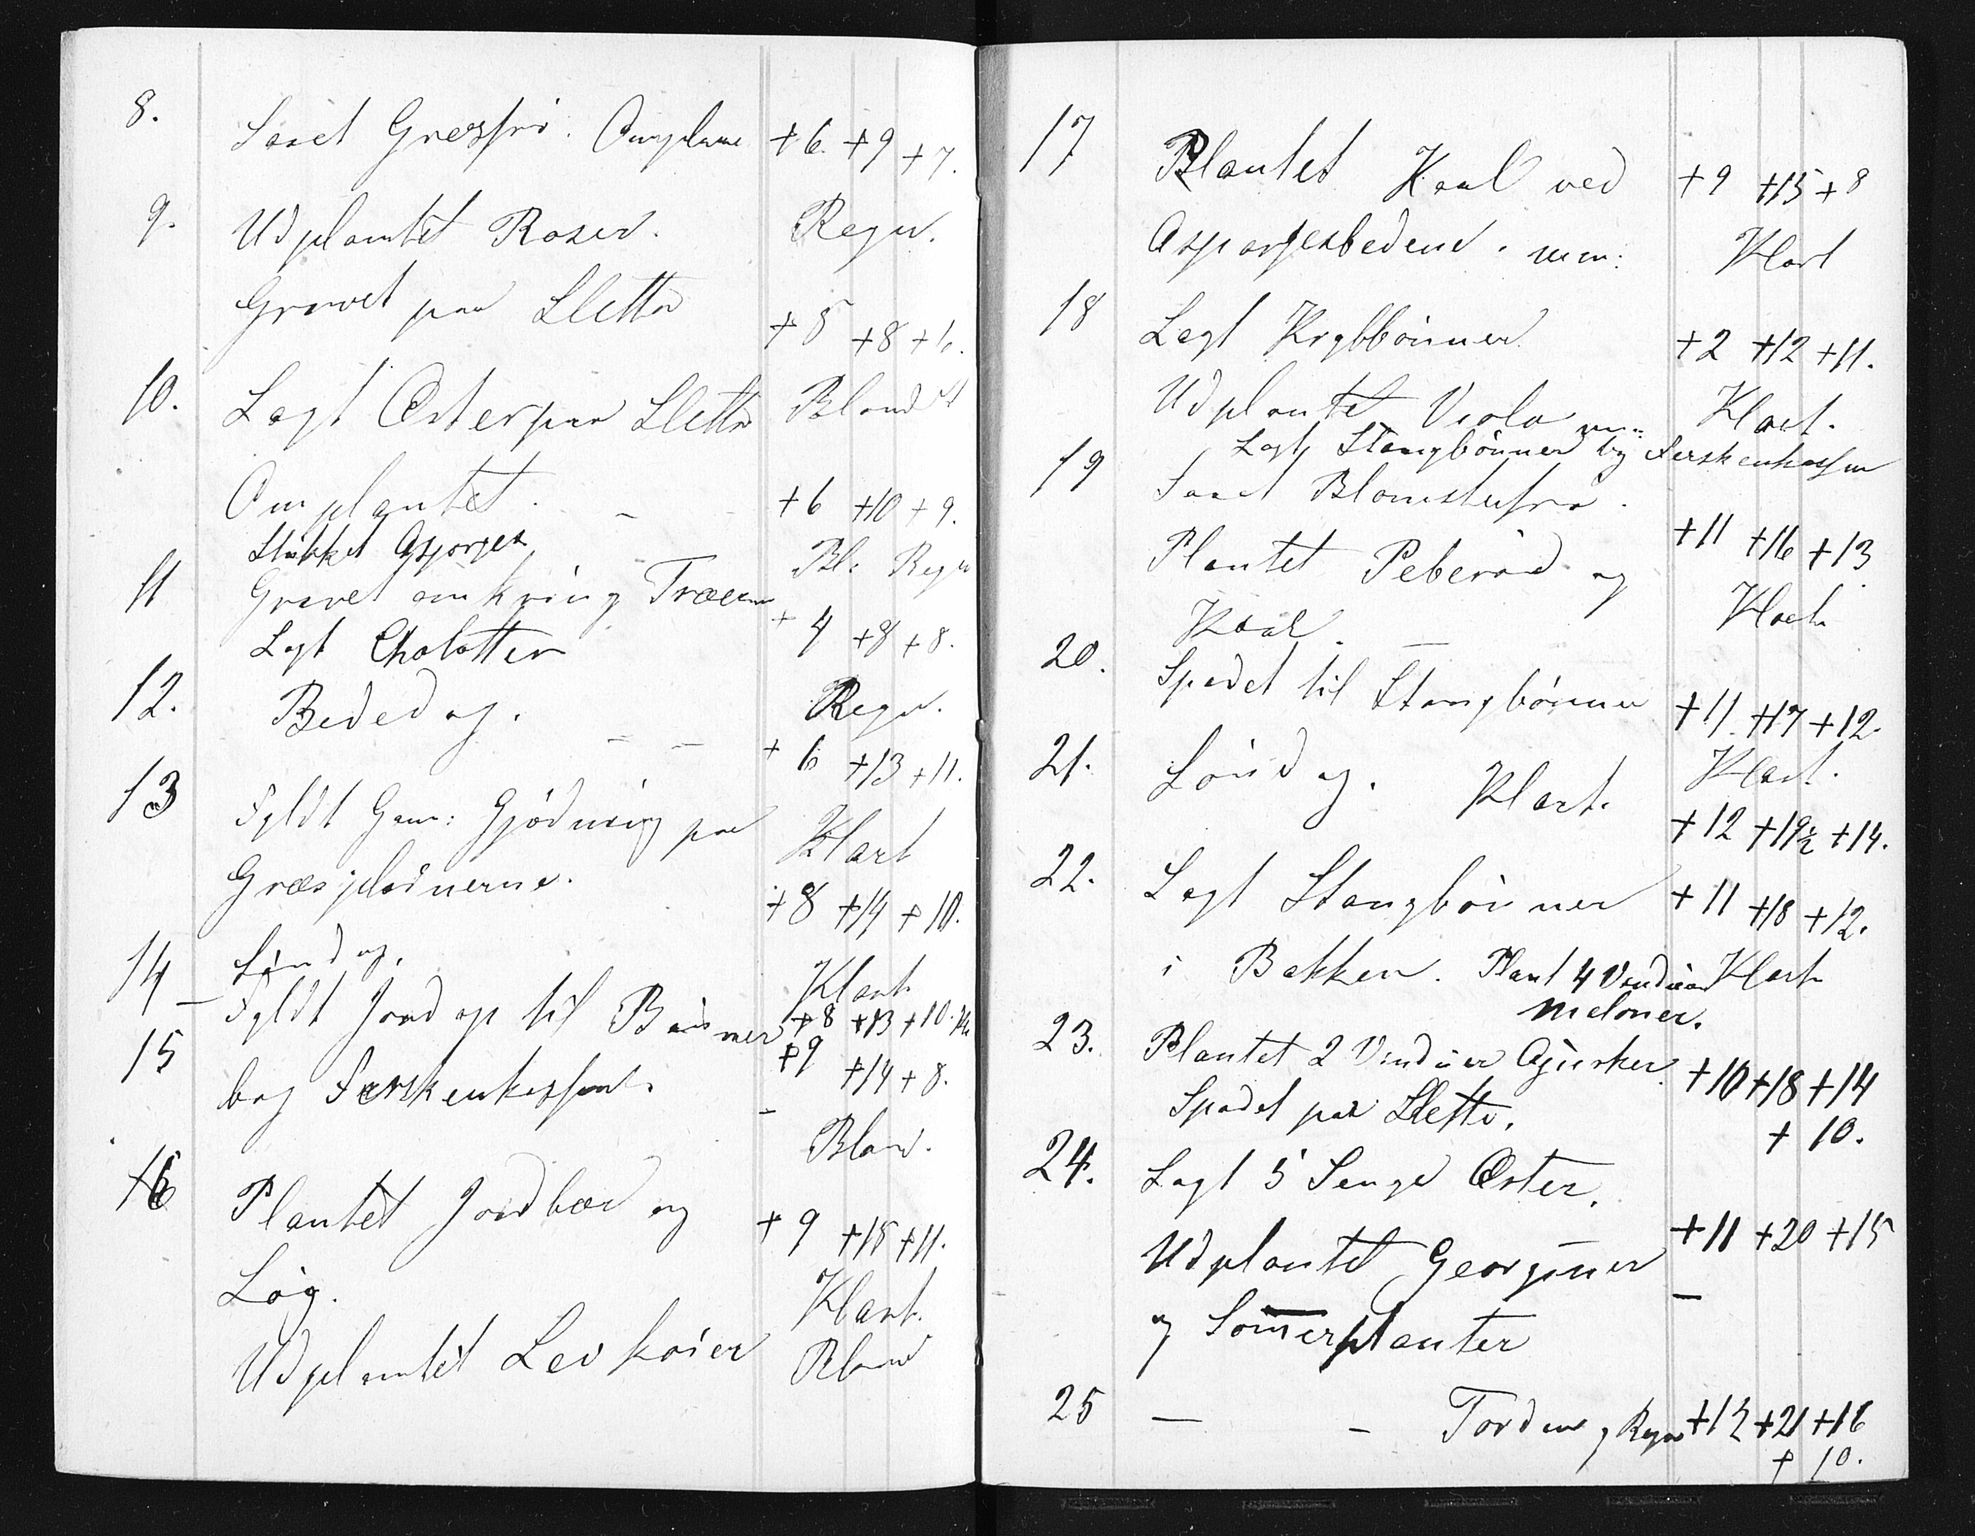 8. Saaet Græsfrø. Omplan +6 +9 +7.
9. Udplantet Roser. Regn.
Gravet paa Sletta +5 +8 +6.
10. Lagt Erter paa Sletta Bland
Omplantet. +6 +10 +9.
Stukket Asparges Bl. Regn
11 Gravet omkring Træerne +4 +8 +8.
Lagt Chalotter
12. Bededag. Regn.
+6 +13 +11.
13 Fyldt Gam: Gjødning paa Klart
Græsplænerne. +8 +14 +10.
14 Søndag. Klart
Fyldt Jord op til Bønner +8 +13 +10. Kl
15 bag Ferskenkassen. +9 +14 +8.
Blan.
16 Plantet Jordbær og +9 +15 +11.
Løg. Klart.
Udplantet Levkøier Bland
17 Plantet Kaal ved +9 +15 +8
Aspargesbedene. mm: Klart
18 Lagt Krybbønner +2 +12 +11.
Udplantet Viola mm: Klart.
Lagt Stangbønner bag Ferskenkassen
19 Saaet Blomsterfrø.
Plantet Peberrod og +11 +16 +13
Kaal. Klart
20. Spadet til Stangbønner +11. +17 +12.
21. Søndag. Klart. Klart.
+12 +19½ +14.
22. Lagt Stangbønner +11 +18 +12.
i Bakken. Plant 4 Vinduer Klart
Meloner.
23. Plantet 2 Vinduer Agurker. +10 +18 +14
Spadet paa Sletta. +10.
24. Lagt 5 Senge Erter.
Udplantet Georginer +11 +20 +15
og Somerplanter
25 — - Torden og Regn +12 +21 +16
+10.